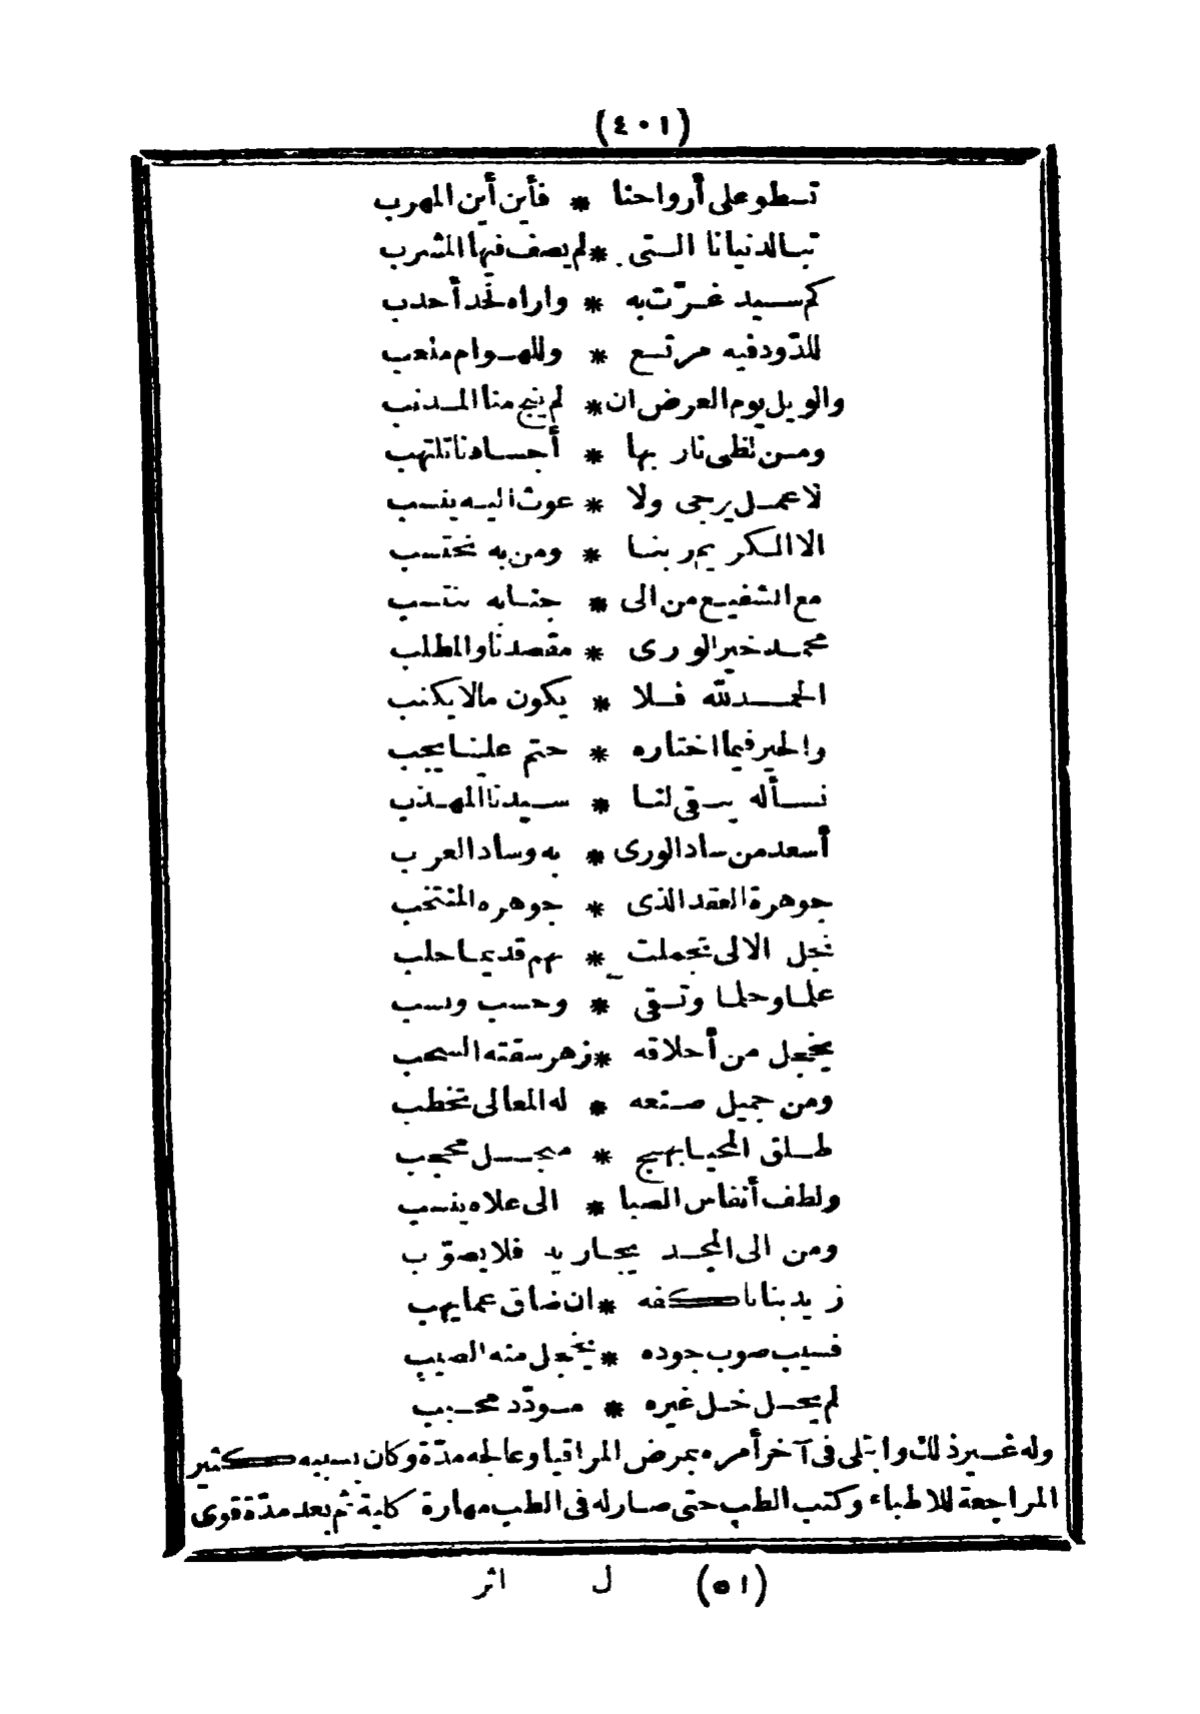 (٤٠١)
تسطو على أرواحنا * فأين أين المهرب
تبا لدنيانا التي * لم يصف فيها المشرب
كم سيد غرّت به * واراه لحد أحدب
للدّود فيه مرتع * وللهوام منعب
والويل يوم العرض ان * لم ينج منا المذنب
ومن لظى نار بها * أجسادنا تلتهب
لا عمل يرجى ولا * غوث اليه ينسب
الا الكريم ربنا * ومن به نحتسب
مع الشفيع من الى * جنابه ننتسب
محمد خير الورى * مقصدنا والمطلب
الحمد لله فلا * يكون ما لا يكتب
والخير فيما اختاره * حتم علينا يجب
نسأله يبقى لنا * سيدنا المهذب
أسعد من ساد الورى * به وساد العرب
جوهرة العقد الذى * جوهره المنتخب
نجل الالى تجملت * بهم قديما حلب
علما وحلما وتقى * وحسب ونسب
يخجل من أخلاقه * زهر سقته السحب
ومن جميل صنعه * له المعالى تخطب
طلق المحيا بهيج * مبجل محجب
ولطف أنفاس الصبا * الى علاه ينسب
ومن الى المجد يجاريه فلا يصوّب
زيد بنانا كفه * ان ضاق عما يهب
فسيب صوب جوده * يخجل منه الصيب
لم يحل خل غيره * مودّد محبب
وله غير ذلك وابتلى فى آخر أمره بمرض المراقيا وعالجه مدّة وكان بسببه كثير
المراجعة للاطباء وكتب الطب حتى صار له فى الطب مهارة كلية ثم بعد مدّة قوى
(٥١) ل اثر